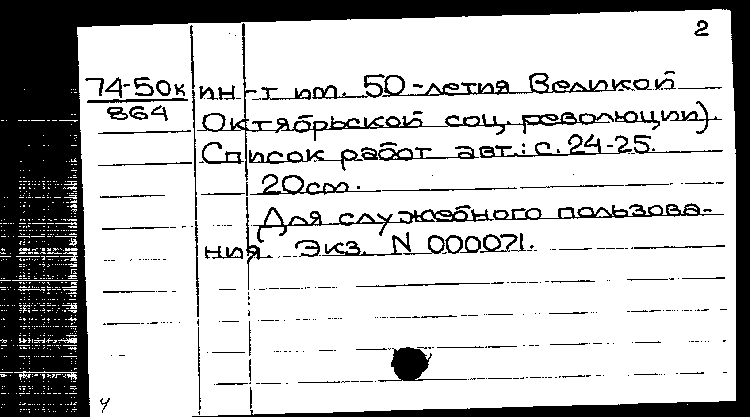 2
74-50к
864
ин-т им. 50-летия Великой
Октябрьской соц. революции).
Список работ авт.: с. 24-25.
20см.
Для служебного пользова-
ния. Экз. N 000071.